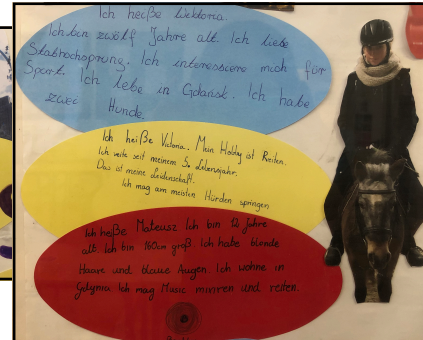 Ich heiße Wiktoria.
Ich bin zwölf Jahre alt. Ich liebe
Stabhochsprung. Ich interessiere mich für
Sport. Ich lebe in Gdańsk. Ich habe
zwei Hunde.
Ich heiße Victoria. Mein Hobby ist Reiten.
Ich reite seit meinem 5. Lebensjahr.
Das ist meine Leidenschaft.
Ich mag am meisten Hürden springen
Ich heiße Mateusz Ich bin 12 Jahre
alt. Ich bin 160cm groß. Ich habe blonde
Haare und blaue Augen. Ich wohne in
Gdynia Ich mag Music und reiten.